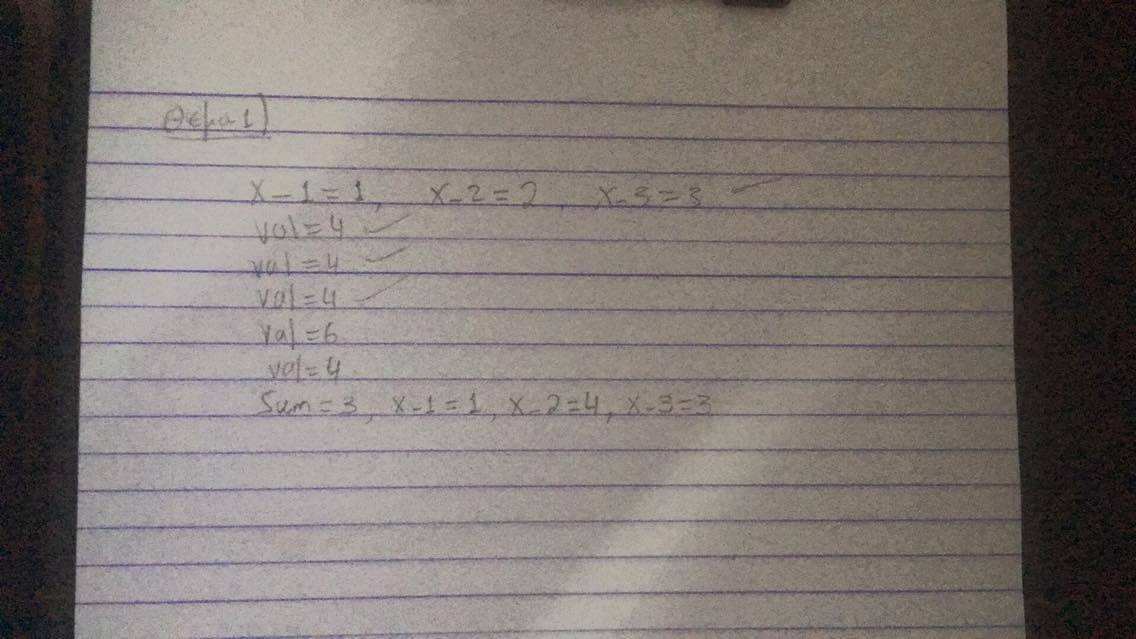 Θέμα 1)
x_1=1, x_2=2, x_3=3
val=4
val=4
val=4
val=6
val=4
Sum=3, x_1=1, x_2=4, x_3=3